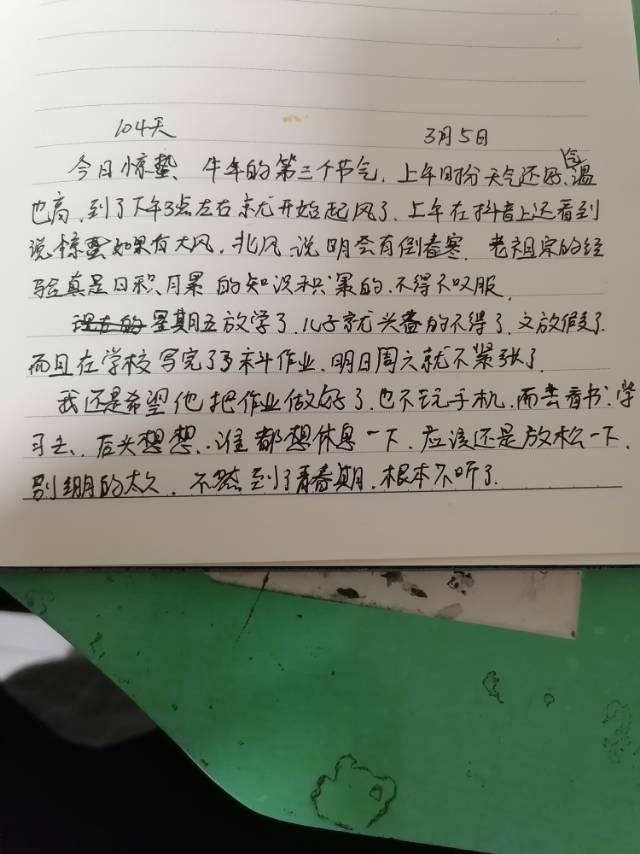 104天 3月5日
今日惊蛰、牛年的第三个节气，上午时份天气还好，气温
也高，到了下午3点左右就开始起风了，上午在抖音上还看到
说惊蛰如果有大风，北风，说明会有倒春寒，老祖宗的经
验真是日积月累的知识积累的，不得不叹服，
现在的星期五放学了，儿子就兴奋的不得了，又放假了
而且在学校写完了多半作业，明日周六就不紧张了，
我还是希望他把作业做好了，也不玩手机，而去看书、学
习去、后头想想，谁都想休息一下，应该还是放松一下，
别绷的太久，不然到了青春期，根本不听了，